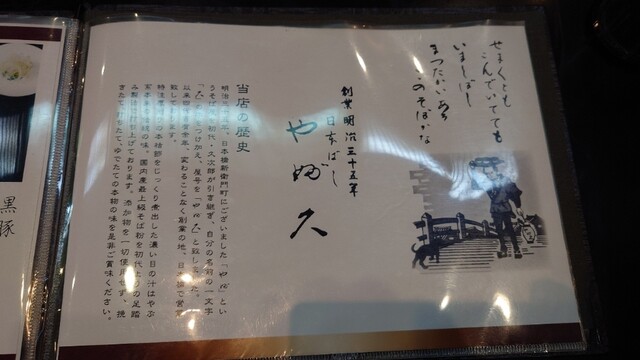 せまくとも
こんでいても
いましばし
まつたいあり
このそばがな
創業明治三十五年
日本ばし
やぶ久
当店の歴史
明治三十五年、日本橋新右衛門町にございました「やぶ」とい
うそば屋を初代・久次郎が引き継ぎ、自分の名前の一文字
「久」をつけ加え、屋号を「やぶ久」と致しました。
以来百有余年、変わることなく創業の地、日本橋で営業
致しております。
特注厚削りの本枯節をじっくり煮出した濃い目の汁はやぶ
国内産最上級そば粉を初代よりの足踏
み製法で打ち上げております。添加物を一切使用せず、挽
きたて、打ちたて、ゆでたての本物の味を是非ご賞味ください。
黒豚